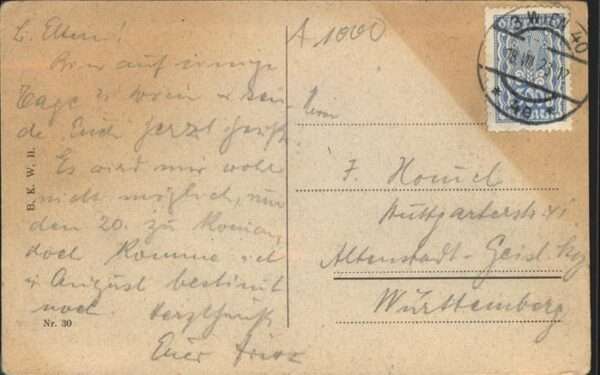 L. Eltern!
Bin auf einige
Tage in Wien & sen-
de Euch herzl. Grüße.
Es wird mir wohl
nicht möglich, um
den 20. zu kommen,
doch komme ich
i. August bestimmt
noch. Herzl. Grüße
Euer
B. K. W. II.
Nr. 30
A 1000
3 WIEN 40
Herrn
J.
Stuttgarterstr.
Altenstadt - Geisl.
Württemberg